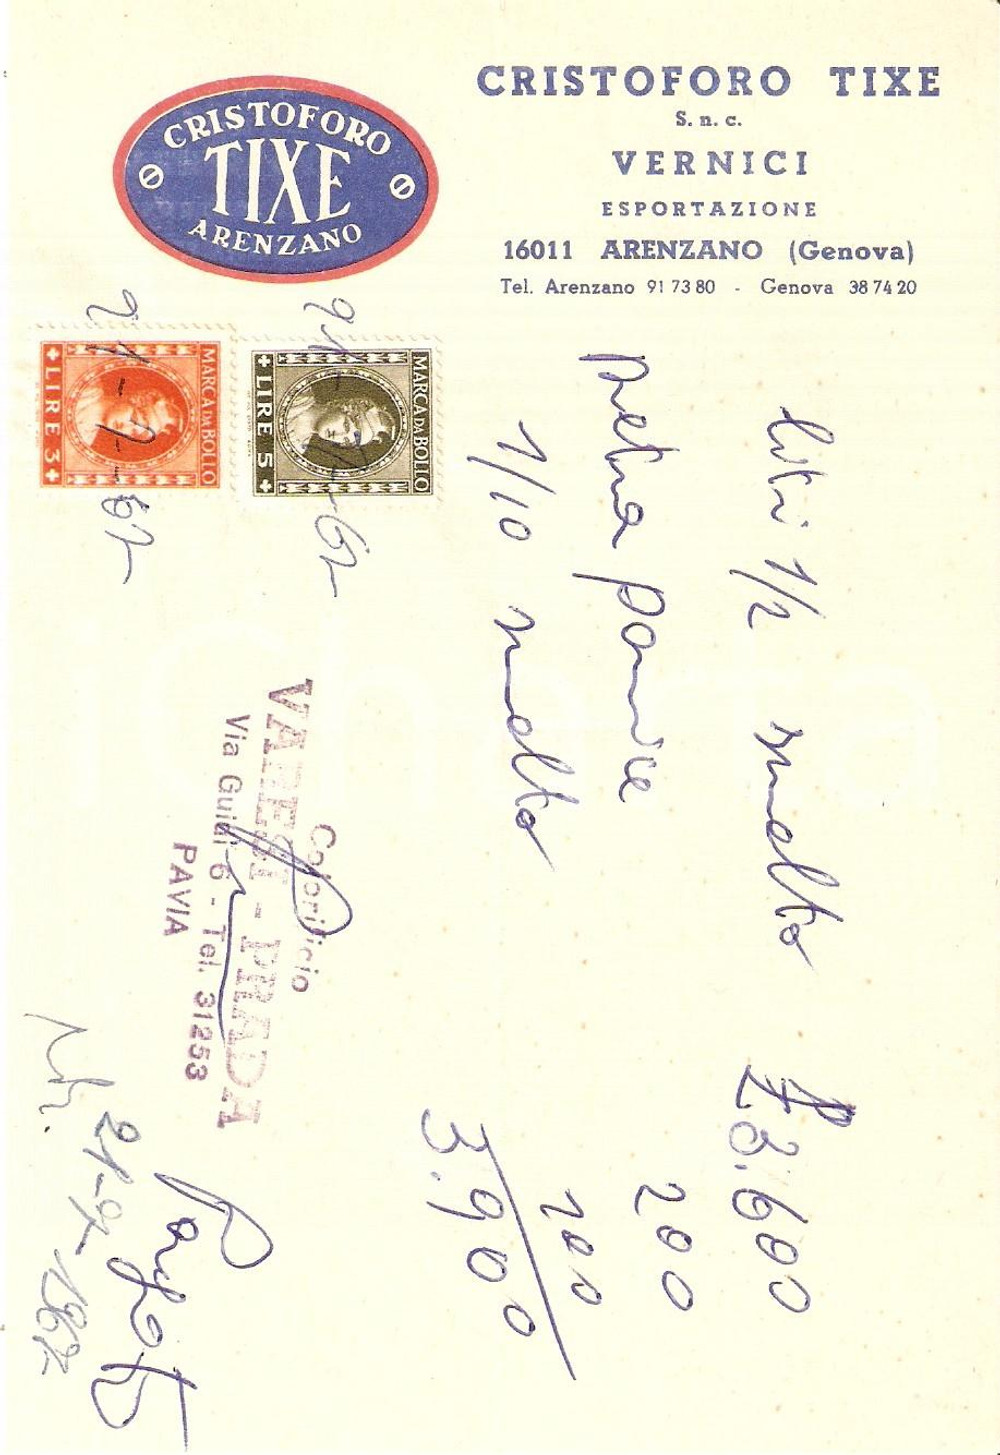 CRISTOFORO
TIXE
ARENZANO
CRISTOFORO TIXE
S. n. c.
VERNICI
ESPORTAZIONE
16011 ARENZANO (Genova)
Tel. Arenzano 91 73 80 - Genova 38 74 20
MARCA DA BOLLO
LIRE 3
MARCA DA BOLLO
LIRE 5
21-7-67
21-7-67
litri 1/2 smalto £ 3.600
pietra pomice 200
1/10 smalto 100
3.900
Colorificio
VARESI - PRADA
Via Guidi 6 - Tel. 31253
PAVIA
Pagato
21-7-1967